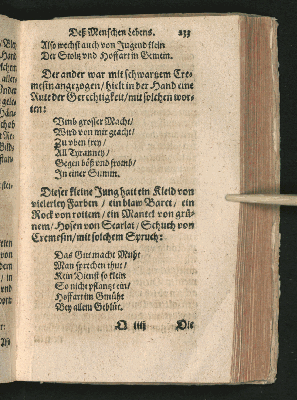 Deß Menschen Lebens. 233
Also wechst auch von Jugend klein
Der Stoltz und Hoffart in Gemein.
Der ander war mit schwartzem Cre-
mesin angezogen / hielt in der Hand eine
Rute der Gerechtigkeit / mit solchen wor-
ten:
Umb grosser Macht /
Wird von mir geacht /
Zu uben frey /
All Tyranney /
Gegen böß und fromb /
In einer Summ.
Dieser kleine Jung hatt ein Kleid von
vielerley Farben / ein blaw Baret / ein
Rock von rottem / ein Mantel von grü-
nem / Hosen von Scarlat / Schuch von
Cremesin / mit solchem Spruch:
Das Gut macht Muht
Man sprechen thut /
Kein Dienst so klein
So nicht pflantzt ein /
Hoffart im Gmüht
Bey allem Geblüt.
Die